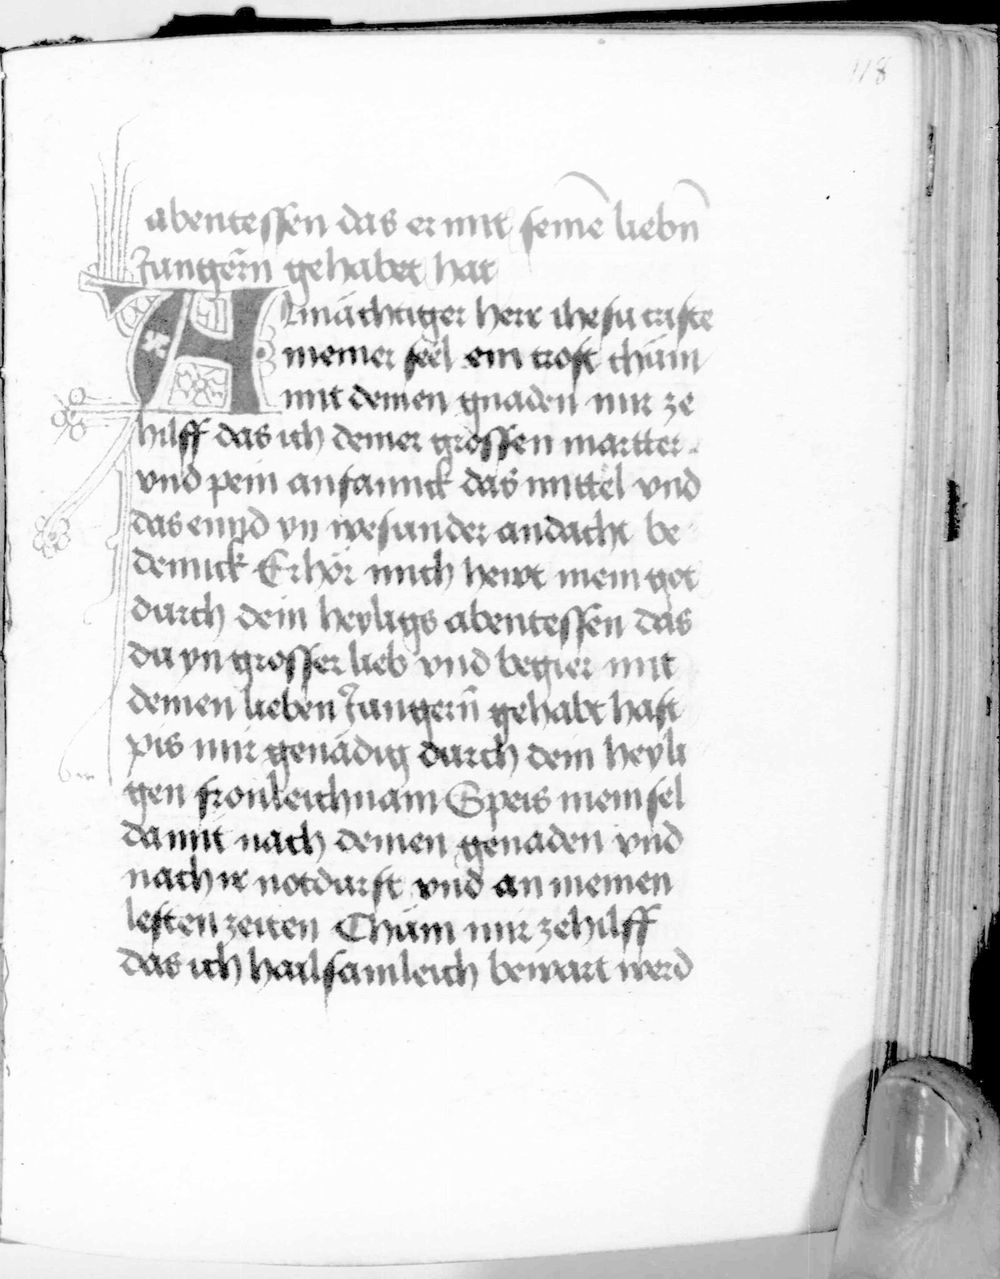 118
abentessen das er mit seinē liebn̄
Jungerñ gehabet hat
Almächtiger herr ihesu criste
meiner seel ein trost chüm
mit deinen gnaden mir ze
hilff das ich deiner grossen martter
vnd pein anfannck das mittel vnd
das ennd yn wesunder andacht be
denick Erhör mich hewt mein got
durch dein heyligs abentessen das
du yn grosser lieb vnd begier mit
deinen lieben Jungerñ gehabt hast
pis mir genädig durch dein heyli
gen fronleichnam Speis mein sel
da mit nach deinen genaden vnd
nach ir notdurft vnd an meinen
lesten zeiten Chüm mir zehilff
das ich hailsamleich bewart werd